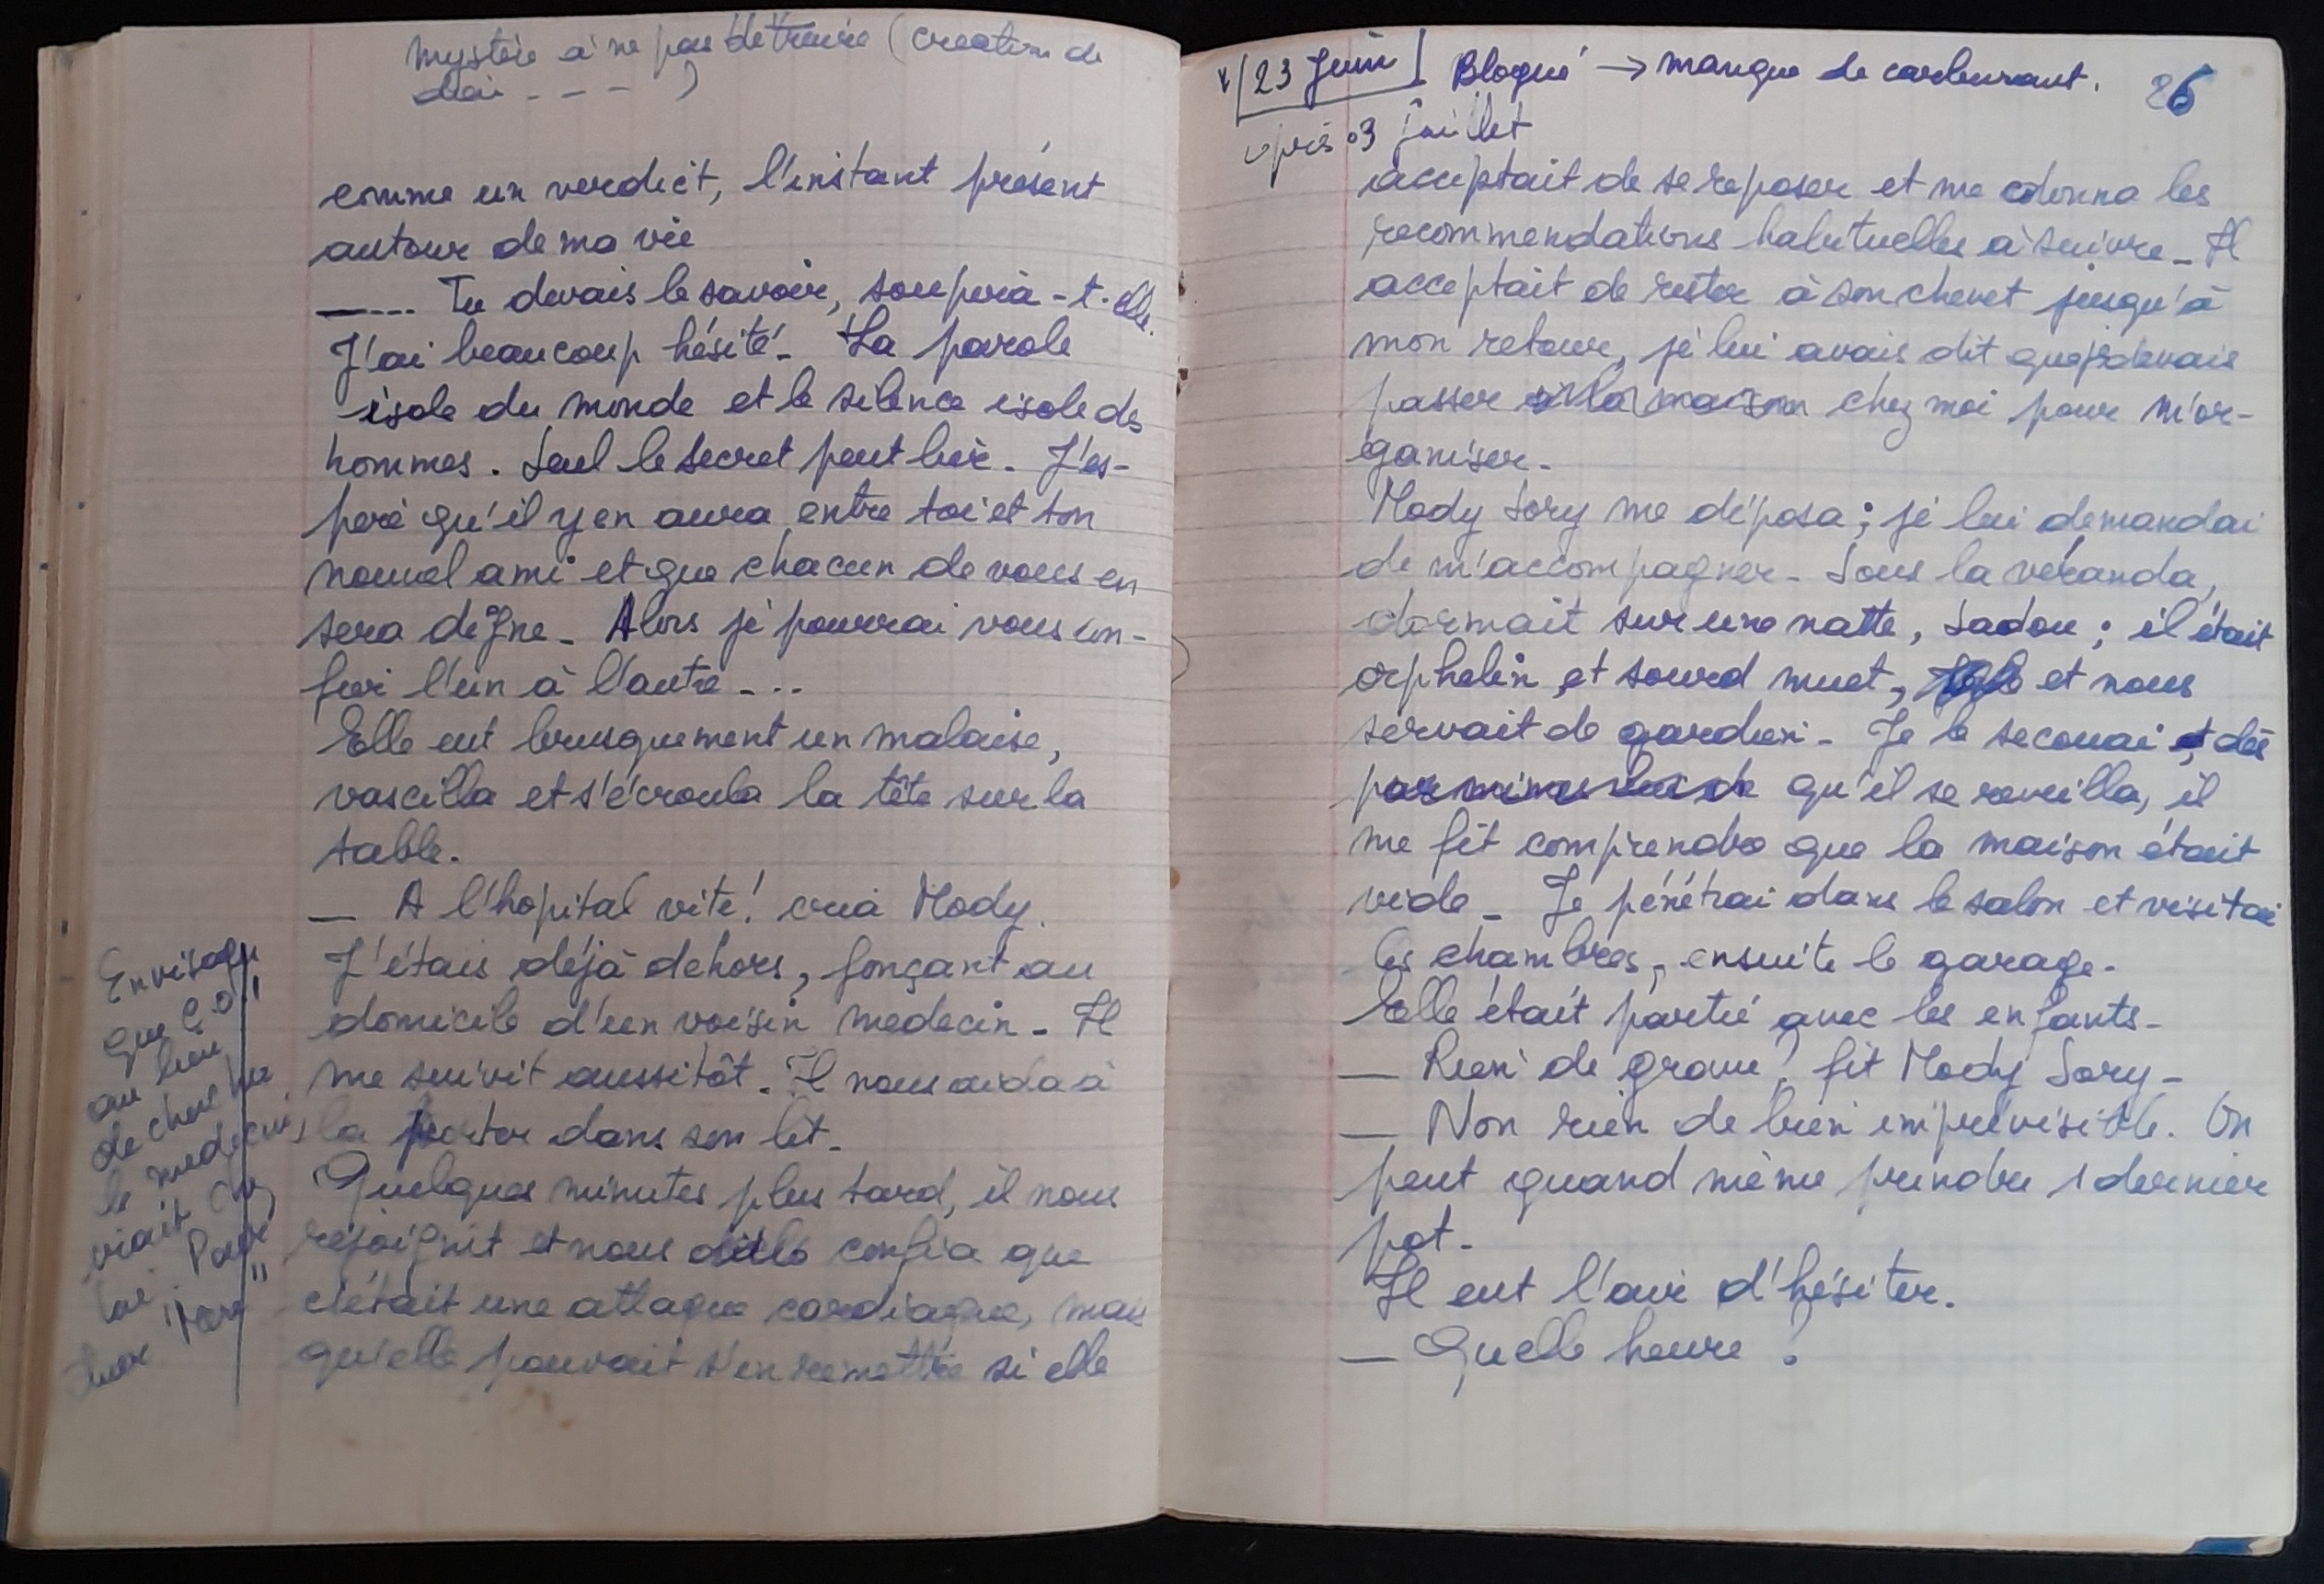 mystère à ne pas détruire (creation de
comme un verdict, l'instant présent
autour de ma vie
—.... Tu devais le savoir, soupira-t-elle.
J'ai beaucoup hésité. La parole
isole du monde et le silence isole des
hommes. Seul le secret peut lier. J'es-
père qu'il y en aura entre toi et ton
nouvel ami et que chacun de vous en
sera digne. Alors je pourrai vous con-
fier l'un à l'autre ...
Elle eut brusquement un malaise,
vascilla et s'écroula la tête sur la
table.
— A l'hopital vite! cria Mody.
J'étais déjà dehors, fonçant au
domicile d'un voisin medecin. Il
me suivit aussitôt. Il nous aida à
la porter dans son lit.
Quelques minutes plus tard, il nous
rejoignit et nous confia que
c'était une attaque cardiaque, mais
qu'elle pouvait s'en remettre si elle
Envisager
que
au lieu
de chercher
le medecin,
[23 Juin] Bloqué → manque de carburant.
26
03 juillet
acceptait de se reposer et me donna les
recommendations habituelles à suivre. Il
acceptait de rester à son chevet jusqu'à
mon retour, je lui avais dit que je devais
passer à la maison chez moi pour m'or-
ganiser.
Mody Sory me déposa ; je lui demandai
de m'accompagner. Sous la véranda,
dormait sur une natte, Sadou ; il était
orphelin et sourd muet, et nous
servait de gardien. Je le secouai et dès
qu'il se reveilla, il
me fit comprendre que la maison était
vide. Je pénétrai dans le salon et visitai
les chambres, ensuite le garage.
Elle était partie avec les enfants.
— Rien de grave? fit Mody Sory.
— Non rien de bien imprévisible. On
peut quand même prendre 1 dernier
pot.
Il eut l'air d'hésiter.
— Quelle heure ?